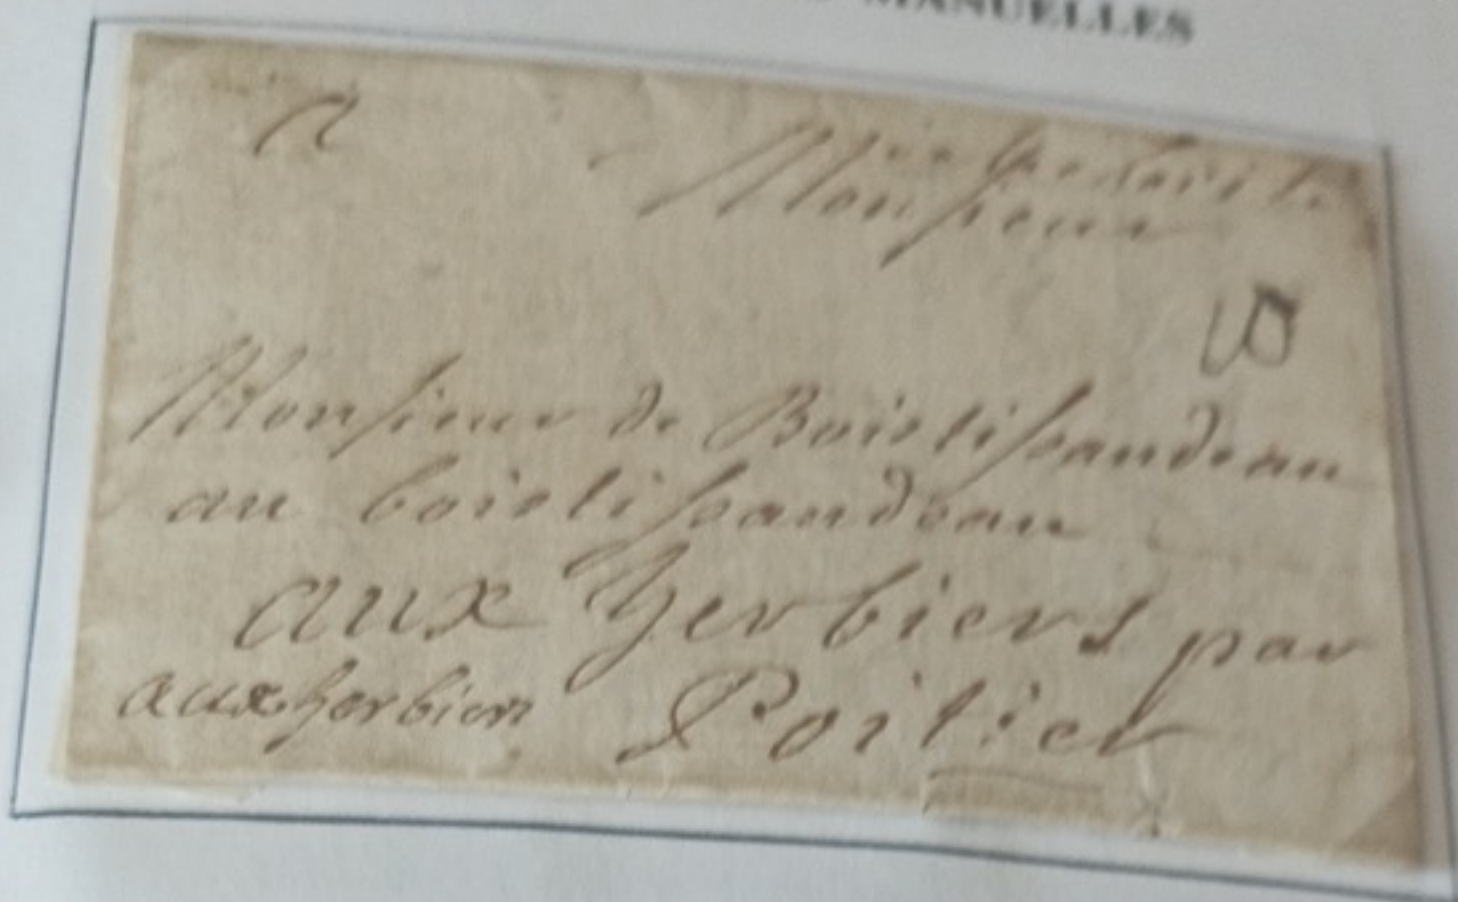 MANUELLES
A
Monsieur
Monsieur de Boistissandeau
au boistissandeau
aux herbiers par
aux herbiers Poitier